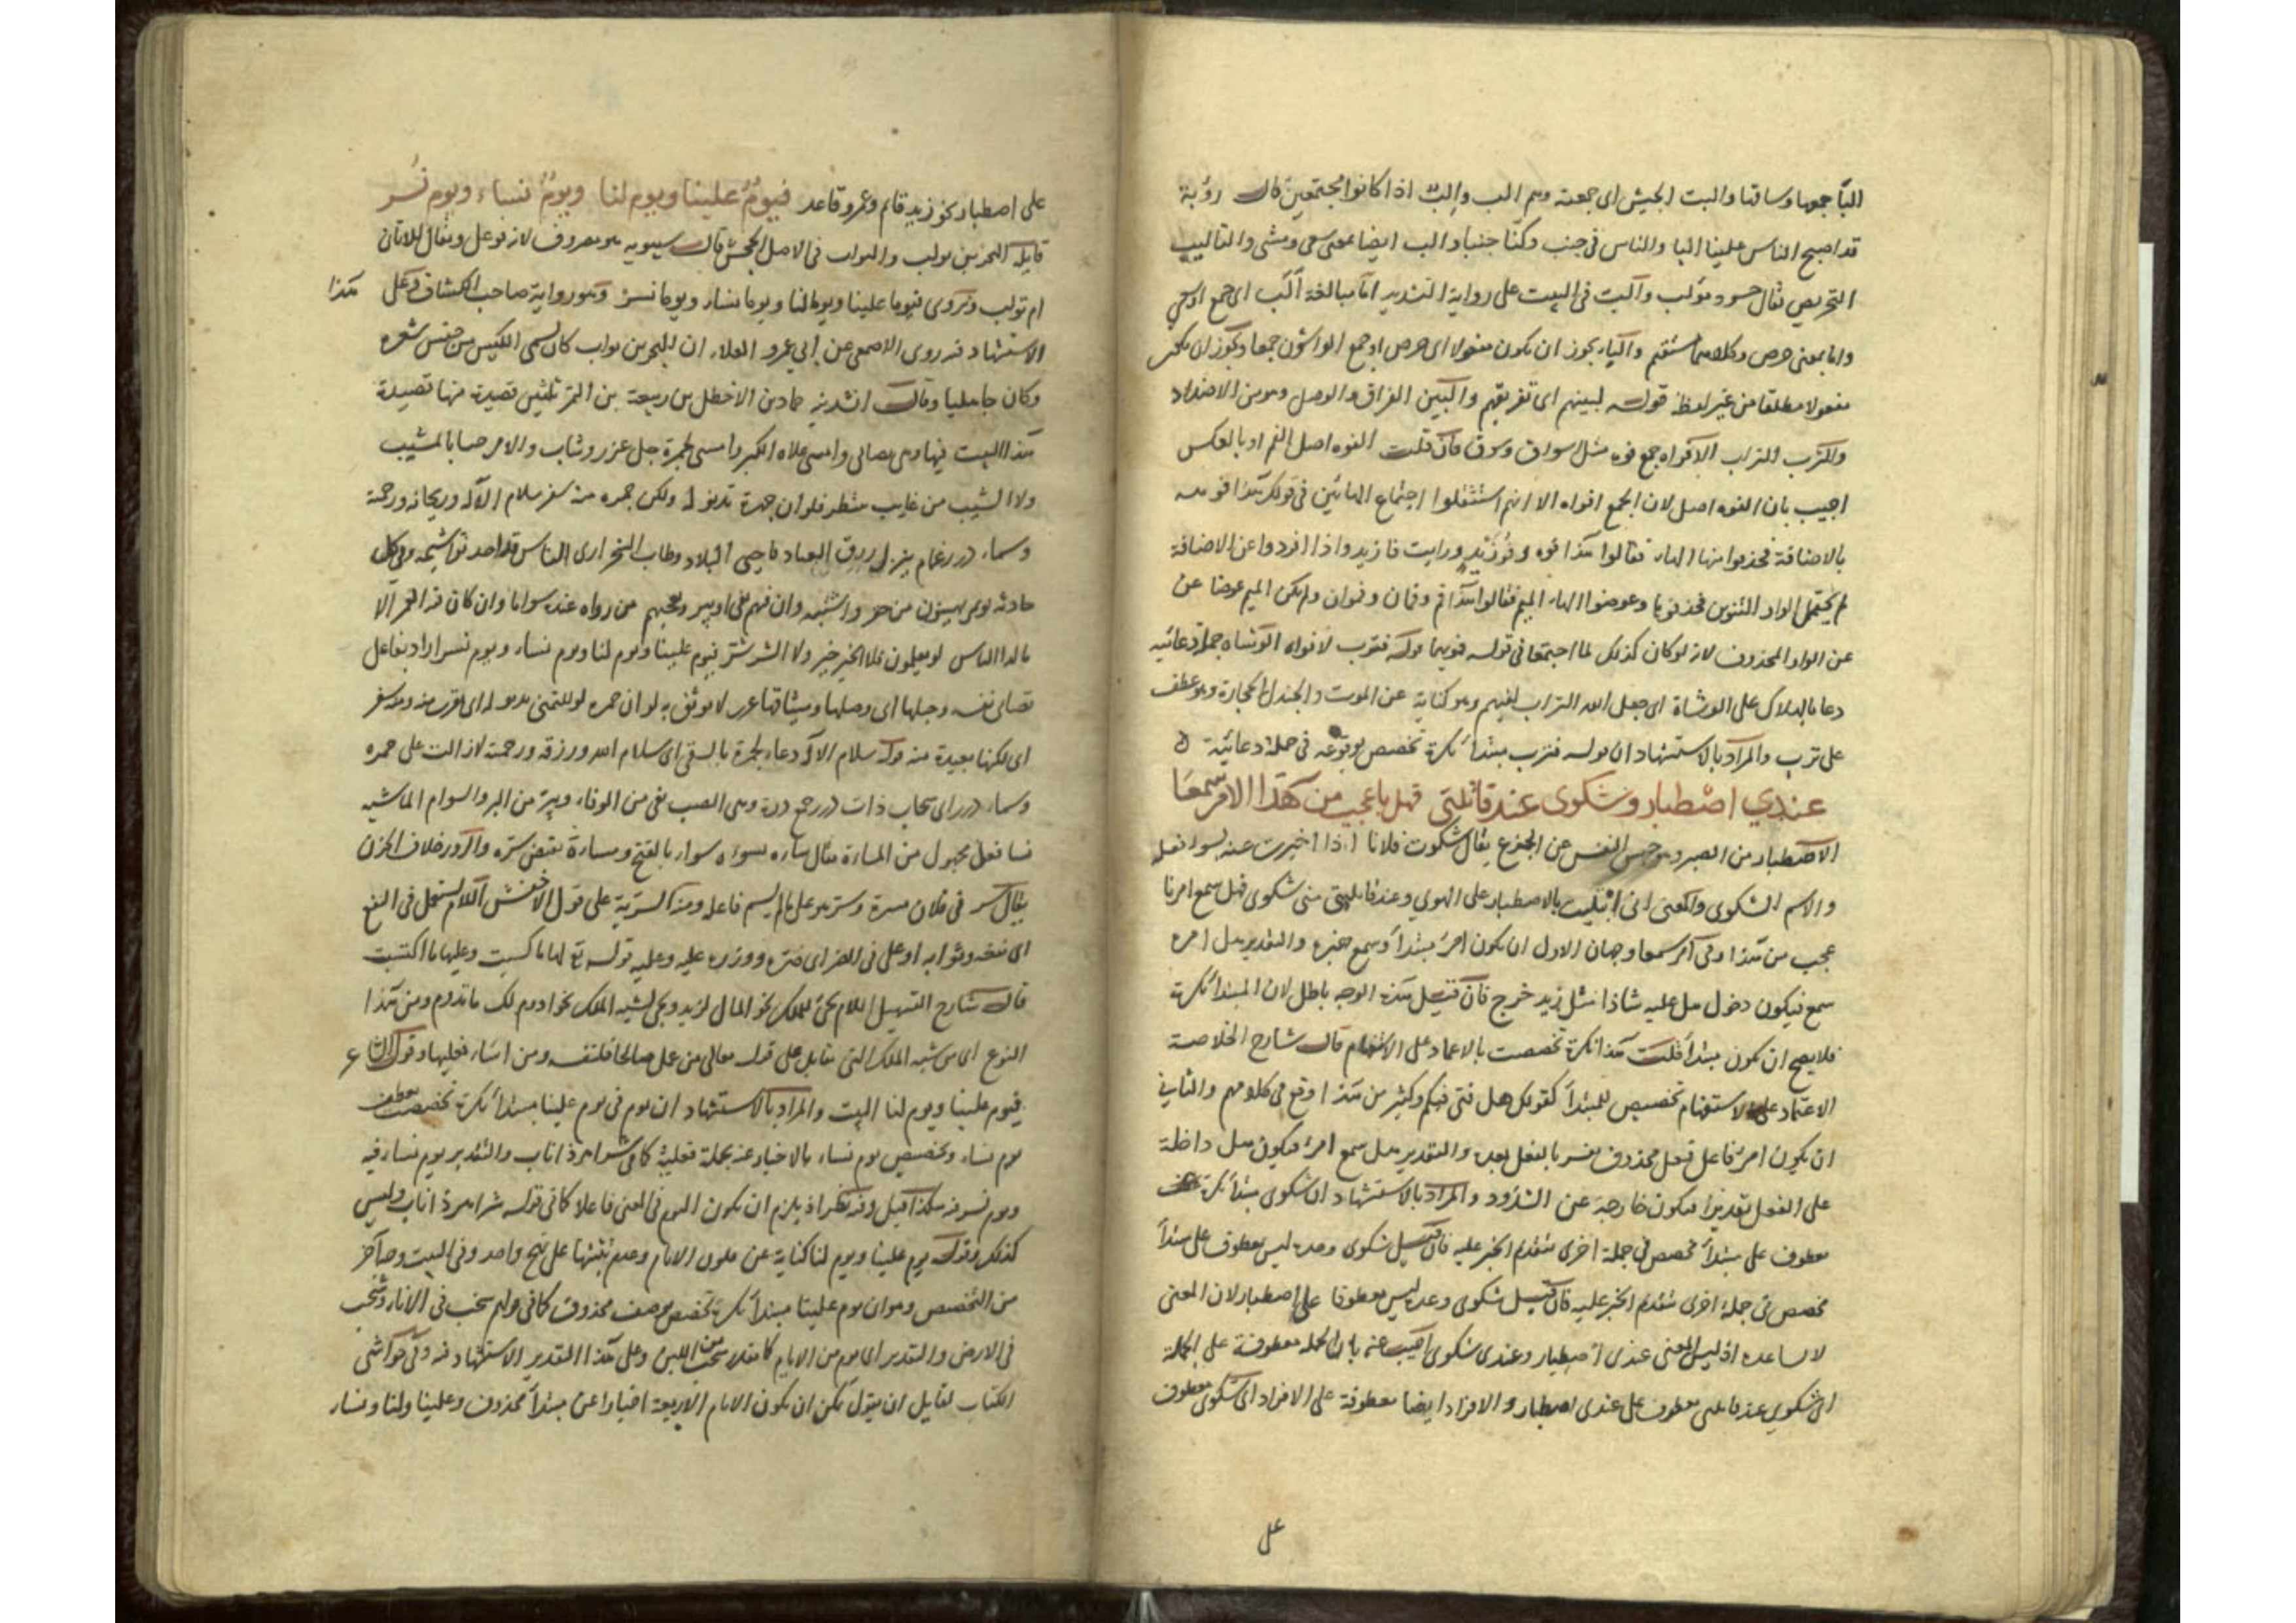 البا جمعها وساقها والبت الجيش اى جمعته وهم الب والب اذا كانوا مجتمعين قال رؤبة
قد اصبح الناس علينا البا والناس فى جنب وكنا جنبا والب ايضا بمعنى سعى ومشى والتاليب
التحريض يقال حسود مؤلب والبت فى البيت على رواية التشديد اما مبالغة الب اى جمع او سعى
واما بمعنى حرص وكلاهما مستقيم واليا يجوز ان يكون مفعولا اى حرص او جمع الواشون جمعا ويجوز ان يكون
مفعولا مطلقا من غير لفظه قوله لبينهم اى تفريقهم والبين الفراق والوصل وهو من الاضداد
والترب التراب الافواه جمع فوه مثل اسواق وسوق فان قلت الفوه اصل الفم او بالعكس
اجيب بان الفوه اصل لان الجمع افواه الا انهم استثقلوا اجتماع الهائين فى قولك هذا فوهه
بالاضافة فحذفوا منها الهاء فقالوا هذا فوه وفو زيد ورايت فا زيد واذا افردوا عن الاضافة
لم يحتمل الواو التنوين فحذفوها وعوضوا الهاء الميم فقالوا هذا فم وفمان وفموان ولم يكن الميم عوضا عن
عن الواو المحذوف لانه لو كان كذلك لما اجتمعا فى قوله فمويهما قوله فترب لافواه الوشاه جملة دعائيه
دعا بالهلاك على الوشاة اى جعل الله التراب لفيهم وهو كناية عن الموت والجندل الحجارة وهو عطف
على ترب والمراد بالاستشهاد ان قوله فترب مبتدأ نكرة تخصص بوقوعه فى جملة دعائية
عندي اصطبار وشكوى عند قاتلتي فهل باعجب من هذا الامر سمعا
الاصطبار من الصبر وهو حبس النفس عن الجزع يقال شكوت فلانا اذا اخبرت عنه بسوء فعله
والاسم الشكوى والمعنى انى ابتليت بالاصطبار على الهوي وعند قاتلتي منى شكوى فهل سمع امرنا
عجب من هذا وفى امر سمعا وجهان الاول ان يكون امرء مبتدأ وسمع خبره والتقدير هل امره
سمع فيكون دخول هل عليه شاذا مثل زيد خرج فان قيل هذه الوجه باطل لان المبتدأ نكرة
فلا يصح ان يكون مبتدأ قلت هذا نكرة تخصصت بالاعماد على الاستفهام قال شارح الخلاصة
الاعتماد على الاستفهام تخصيص للمبتدأ كقولك هل فتى فيكم وكثير من هذا وقع فى كلامهم والثاني
ان يكون امرء فاعل فعل محذوف يفسر بالفعل بعده والتقدير هل سمع امرء فيكون هل داخلة
على الفعل تقديرا فيكون خارجة عن الشذوذ والمراد بالاستشهاد ان شكوى مبتدأ نكرة
معطوف على مبتدأ مخصص فى جملة اخرى متقدم الخبر عليه فان قيل شكوى وحده ليس معطوف على مبتدأ
مخصص فى جملة اخرى متقدم الخبر عليه فان قيل شكوى وحده ليس معطوفا على اصطبار لان المعنى
لا يساعده اذ ليس المعنى عندى اصطبار وعندى شكوى اجيب عنه بان الجملة معطوفة على الجملة
اى شكوي عند قاتلتى معطوف على عندى اصطبار والافراد ايضا معطوفة على الافراد اى شكوى معطوف
على
على اصطبار نحو زيد قائم وعمرو قاعد فيوم علينا ويوم لنا ويوم نساء ويوم نسر
قايله النمر بن تولب والتولب فى الاصل الجحش قال سيبويه هو مصروف لانه فوعل ويقال للاتان
ام تولب ويروى فيوما علينا ويوما لنا ويوما نساء ويوما نسر وهو رواية صاحب الكشاف وعلى هذا
الاستشهاد فيه روى الاصمعى عن ابى عمرو العلاء ان النمر بن تولب كان يسمى الكيس من حسن شعره
وكان جاهليا وقال انشدنيه حماد بن الاخطل بن ربيعة بن النمر ثلثين قصيدة منها قصيدة
هذا البيت فيها وهى تصابى وامسى علاه الكبر وامسى لجمرة حبل غرر وشاب ولا مرحبا بالمشيب
ولا الشيب من غايب منتظر فلو ان جمرة تدنو له ولكن جمره منه سفر سلام الاله وريحانه ورحمة
وسماء درر غمام ينزل رزق العباد فاحيى البلاد وطاب الشجر ارى الناس قد احدثوا شيمه وفى كل
حادثه يؤتمر يهينون من حقروا شيبه وان كان فيهم يفى او يبر ويعجبهم من راوه عنده سواما وان كان فيه الغمر الا
يا لذا الناس لو يعلمون للخير خير وللشر شر فيوم علينا ويوم لنا ويوم نساء ويوم نسر اراد بفاعل
تصابى نفسه وحبلها اى وصلها وميثاقها غرر لا يوثق به لو ان جمره لو للتمنى تدنو له اى تقرب منه ومنه سفر
اى لكنها بعيدة منه قوله سلام الاله دعاء لجمرة بالسقى اى سلام الله ورزقه ورحمته لا زالت على جمره
وسماء درر اى سحاب ذات درر جمع درة وهى الصب يفى من الوفاء ويبر من البر والسوام الماشيه
نساء فعل مجهول من المساءة يقال ساءه يسوءه سواء بالفتح ومساءة نقيض سره والسرور خلاف الحزن
يقال سر فى فلان مسرة وسر هو على ما لم يسم فاعله ومنه السرية على قول الاخفش اللام يستعمل فى النفع
اى نفعه وثوابه او على فى الضر اى ضره ووزره عليه وعليه قوله تع لها ما كسبت وعليها ما اكتسبت
قال شارح التسهيل اللام يجئ للملك نحو المال لزيد ويجئ لشبه الملك نحو ادوم لك ما تدوم ومن هذا
النوع اى من شبه الملك التى تقابل على قوله تعالى من عمل صالحا فلنفسه ومن اساء فعليها وقول الشاعر
فيوم علينا ويوم لنا البيت والمراد بالاستشهاد ان يوم فى يوم علينا مبتدأ نكرة تخصصت بعطف
يوم نساء وتخصيص يوم نساء بالاخبار عنه بجملة فعلية كما فى شر اهر ذا ناب والتقدير يوم نساء فيه
ويوم نسر فيه هكذا قيل وفيه نظر اذ يلزم ان يكون اليوم فى المعنى فاعلا كما فى قوله شر اهر ذا ناب وليس
كذلك وقوله يوم علينا ويوم لنا كناية عن تلون الايام وعدم بقائها على نهج واحد وفى البيت وجه اخر
من التخصص وهو ان يوم علينا مبتدأ نكرة تخصص بوصف محذوف كما فى
فى الارض والتقدير اى يوم من الايام وعلى هذا التقدير الاستشهاد فيه وفى حواشى
الكتاب لقايل ان يقول يمكن ان يكون الايام الاربعة اخبارا عن مبتدأ محذوف وعلينا ولنا ونساء